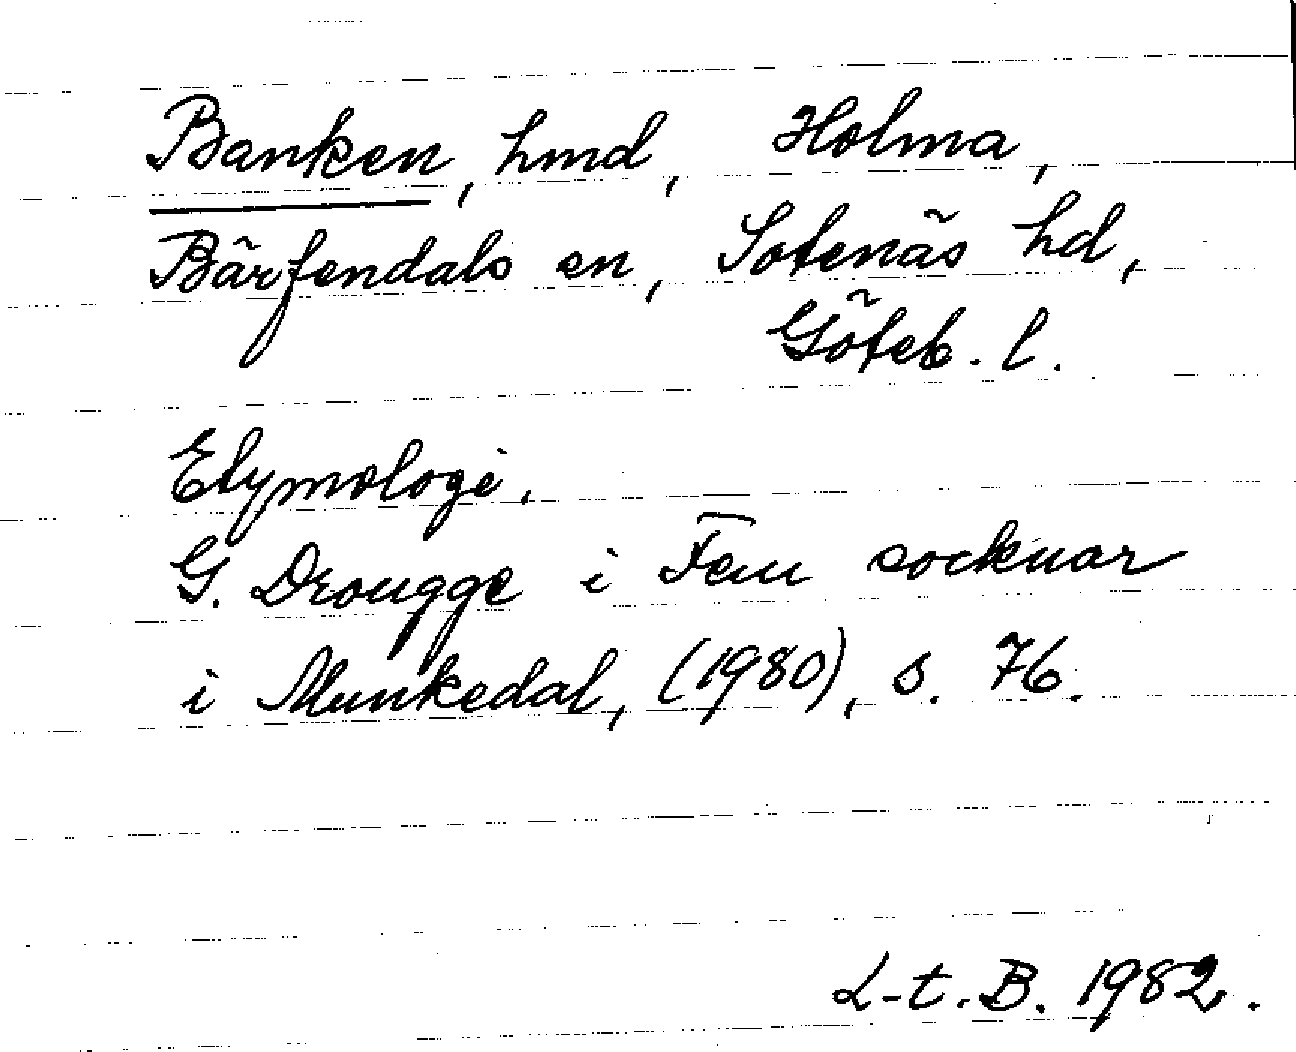 Banken, hmd, Holma,
Bärfendals sn, Sotenäs hd,
Göteb. l.
Etymologi.
G. Drougge i Fem socknar
i Munkedal, (1980), s. 76.
L-t. B. 1982.